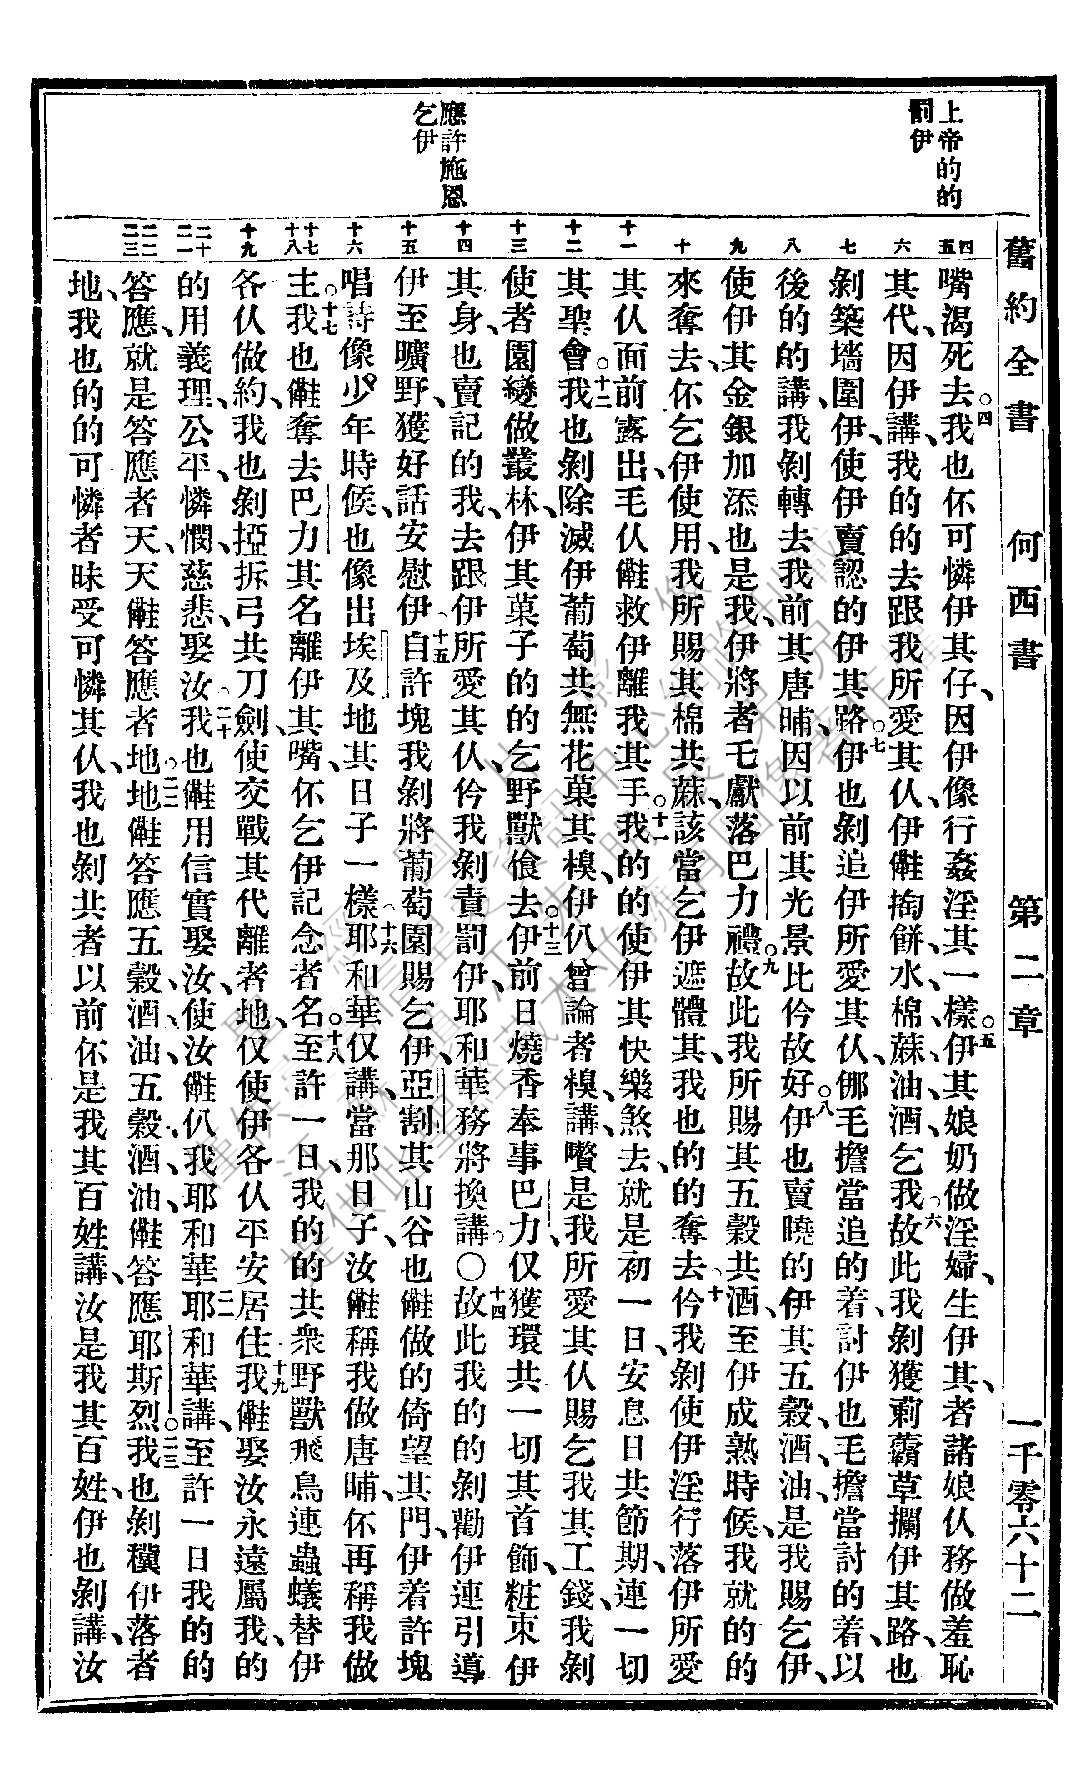 舊約全書 何西書 第二章 一千零六十二
上帝的的
罰伊
應許施恩
乞伊
嘴渴死去、○四我也伓可憐伊其仔、因伊像行姦淫其一樣、○五伊其娘奶做淫婦、生伊其者諸娘仈務做羞恥
其代、因伊講、我的的去跟我所愛其仈、伊𣍐掏餅水棉蔴油酒乞我、○六故此我剝獲莿藋草攔伊其路、也
剝築墻圍伊、使伊賣認的伊其路、○七伊也剝追伊所愛其仈、𠆧毛擔當追的着、討伊也毛擔當討的着、以
後的的講、我剝轉去我前其唐晡、因以前其光景比仱故好、○八伊也賣曉的伊其五穀、酒、油、是我賜乞伊、
使伊其金銀加添也是我、伊將者乇獻落巴力禮、○九故此我所賜其五穀共酒、至伊成熟時候、我就的的
來奪去、伓乞伊使用、我所賜其棉共蔴、該當乞伊遮體其、我也的的奪去、○十仱我剝使伊淫行落伊所愛
其仈面前露出、毛仈𠆧救伊離我其手、○十一我的的使伊其快樂煞去、就是初一日、安息日共節期、連一切
其聖會、○十二我也剝除滅伊葡萄共無花菓其樹、伊仈曾論者樹講、嚽是我所愛其仈賜乞我其工錢、我剝
使者園變做叢林、伊其菓子的的乞野獸食去、○十三伊前日燒香奉事巴力、仅獲環共一切其首飾、粧束伊
其身、也賣記的我、去跟伊所愛其仈、仱我剝責罰伊、耶和華務將換講、○十四○故此我的的剝勸伊連引導
伊至曠野、獲好話安慰伊、○十五自許塊我剝將葡萄園賜乞伊、亞割其山谷也𠆧做的倚望其門、伊着許塊
唱詩、像少年時候、也像出埃及地其日子一樣、○十六耶和華仅講、當那日子、汝𠆧稱我做唐晡、伓再稱我做
主、○十七我也𠆧奪去巴力其名離伊其嘴、伓乞伊記念者名、○十八至許一日、我的的共衆野獸飛鳥連蟲蟻替伊
各仈做約、我也剝掗拆弓共刀劍、使交戰其代離者地、仅使伊各仈平安居住、○十九我𠆧娶汝永遠屬我、我的
的用義理、公平、憐憫、慈悲、娶汝、○二十我也𠆧用信實娶汝、使汝𠆧仈我耶和華、○二一耶和華講、至許一日、我的的
答應、就是答應者天、天𠆧答應者地、○二二地𠆧答應五穀酒油、五穀酒油𠆧答應耶斯烈、○二三我也剝穬伊落者
地、我也的的可憐者昧受可憐其仈、我也剝共者以前伓是我其百姓講、汝是我其百姓、伊也剝講、汝